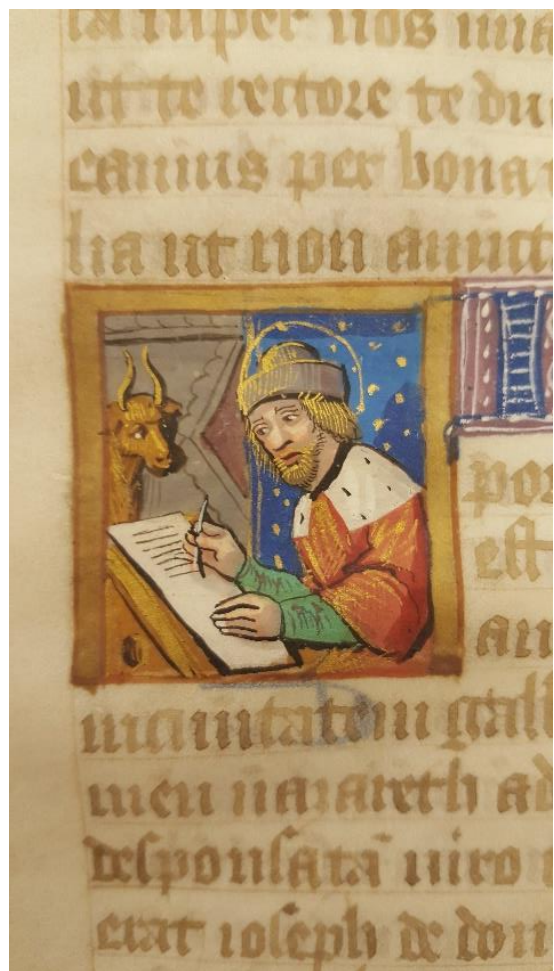 ca super nos mia
ut te rectore te du
eamus per bona
lia ut non amitt
I
por
est
an
in civitatem galil
men nazareth ad
desponsatā viro
erat ioseph de dom